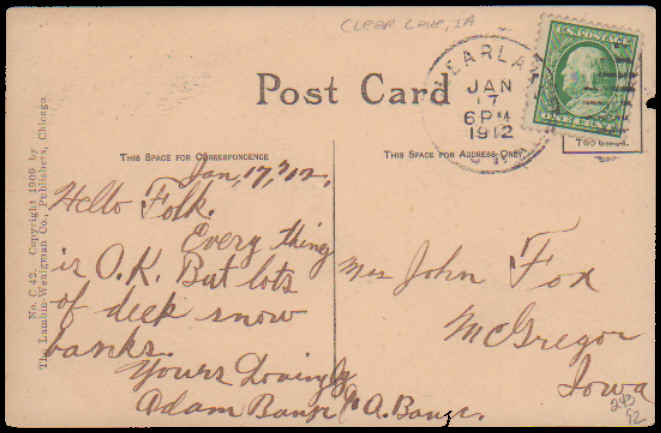 CLEAR LAKE, IA
U.S. POSTAGE
ONE CENT
EARLA
JAN
17
6 PM
1912
Post Card
THIS SPACE FOR CORRESPONDENCE
THIS SPACE FOR ADDRESS ONLY
No. C 42. Copyright 1909 by
The Lambin-Wenigman Co., Publishers, Chicago
Jan, 17, '12,
Hello Folk.
Every thing
is O.K. But lots
of deep snow
banks.
Yours Lovingly
Adam
Mrs John Fox
McGregor
Iowa